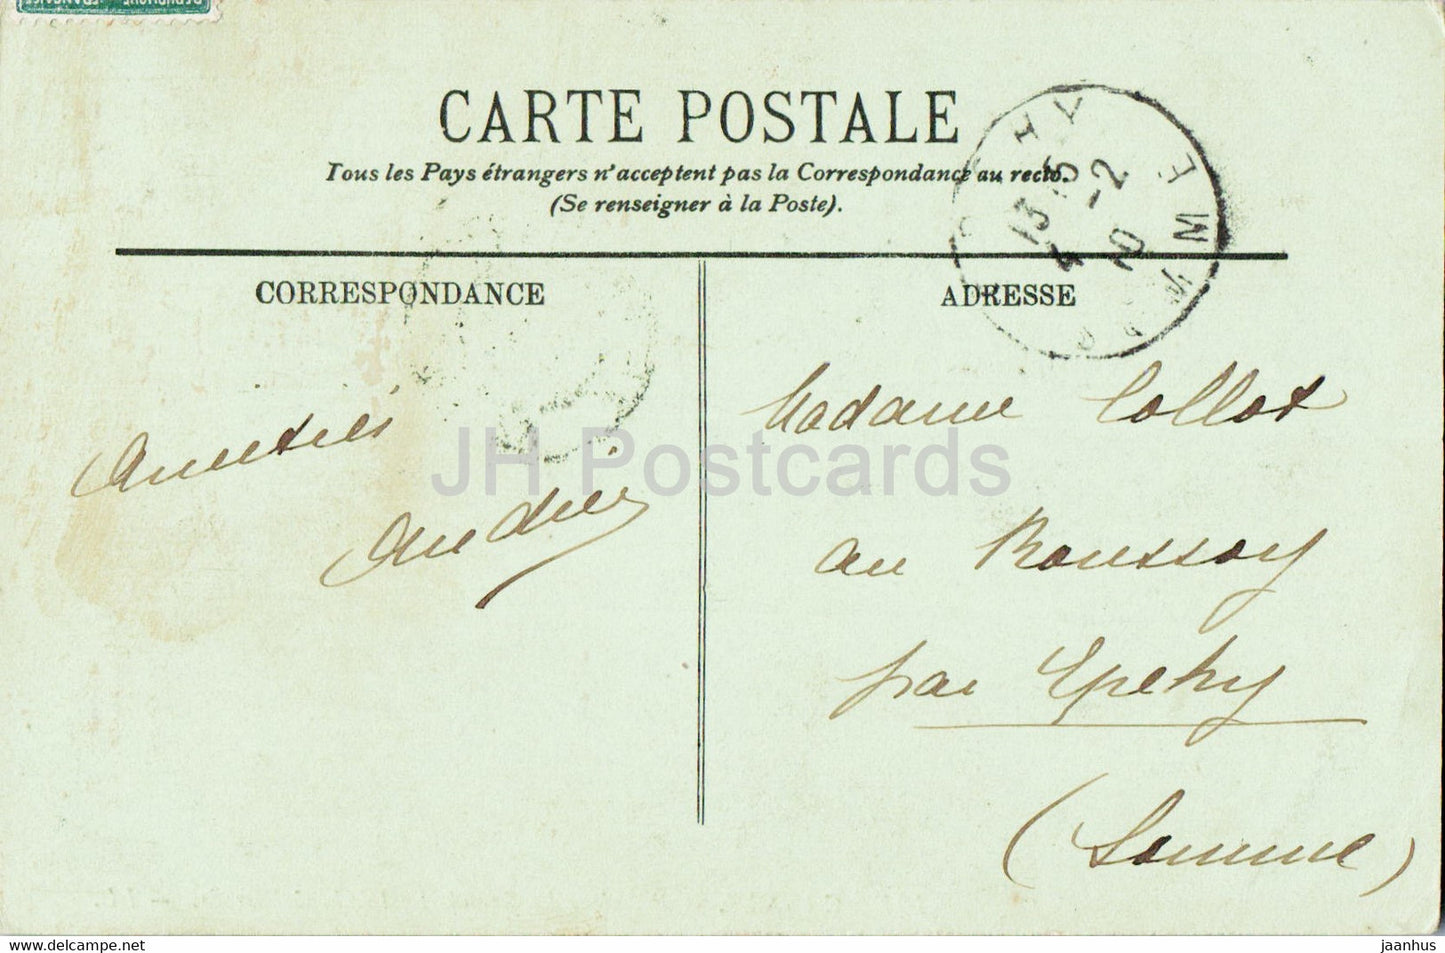 CARTE POSTALE
Tous les Pays étrangers n'acceptent pas la Correspondance au recto.
(Se renseigner à la Poste).
CORRESPONDANCE
ADRESSE
Amitiés
Andrée
Madame Collot
au Ronssoy
par Epehy
(Somme)
13 15
4 -2
10
SOMME
JH Postcards
https://www.delcampe.net
jaanhus